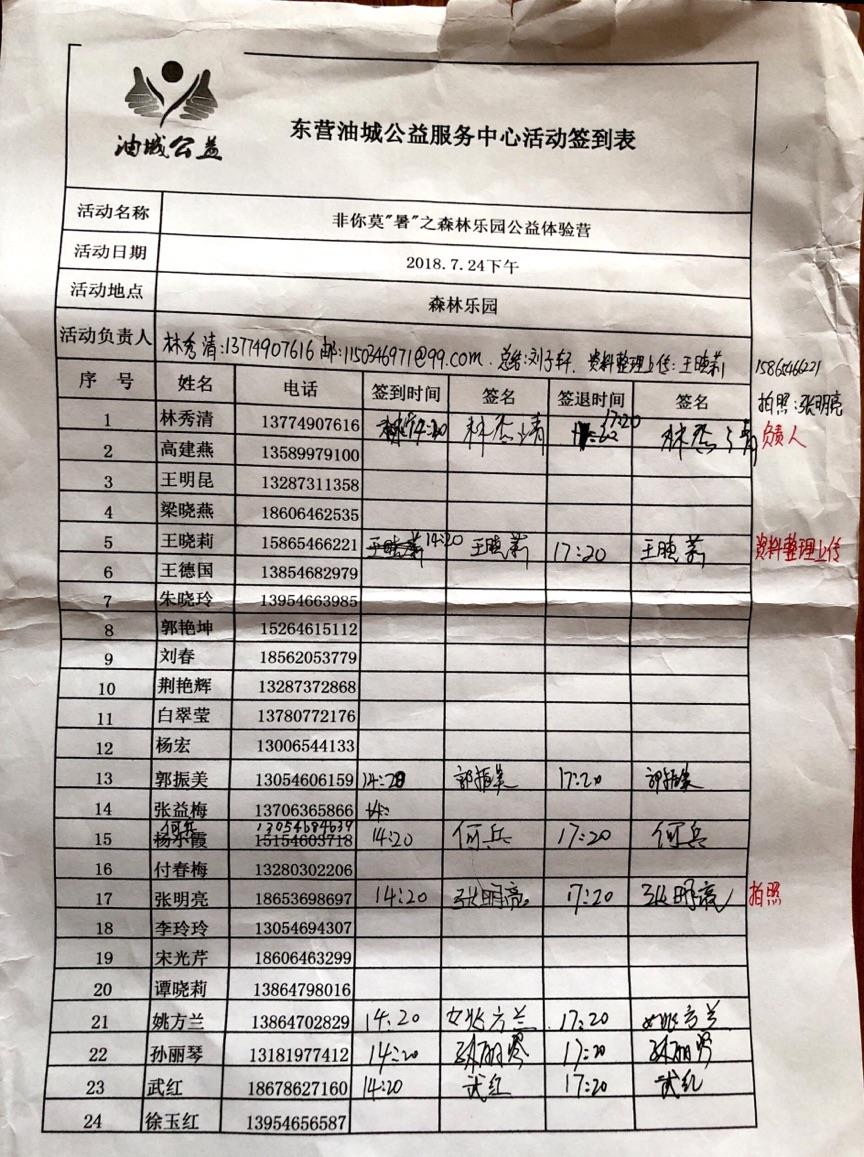 油城公益
东营油城公益服务中心活动签到表
活动名称 非你莫"暑"之森林乐园公益体验营
活动日期 2018.7.24下午
活动地点 森林乐园
活动负责人 林秀清:13774907616 邮:1150346971@99.com. 总结:刘子轩. 资料整理上传:王晓莉 15865466221
序 号 姓名 电话 签到时间 签名 签退时间 签名 拍照:张明亮
1 林秀清 13774907616 14:20 林秀清 17:20 林秀清 负责人
2 高建燕 13589979100
3 王明昆 13287311358
4 梁晓燕 18606462535
5 王晓莉 15865466221 14:20 王晓莉 17:20 王晓莉 资料整理上传
6 王德国 13854682979
7 朱晓玲 13954663985
8 郭艳坤 15264615112
9 刘春 18562053779
10 荆艳辉 13287372868
11 白翠莹 13780772176
12 杨宏 13006544133
13 郭振美 13054606159 14:20 郭振美 17:20 郭振美
14 张益梅 13706365866 14:
何兵 13054684639
15 杨小霞 15154603718 14:20 何兵 17:20 何兵
16 付春梅 13280302206
17 张明亮 18653698697 14:20 张明亮 17:20 张明亮 拍照
18 李玲玲 13054694307
19 宋光芹 18606463299
20 谭晓莉 13864798016
21 姚方兰 13864702829 14:20 姚方兰 17:20 姚方兰
22 孙丽琴 13181977412 14:20 孙丽琴 17:20 孙丽琴
23 武红 18678627160 14:20 武红 17:20 武红
24 徐玉红 13954656587